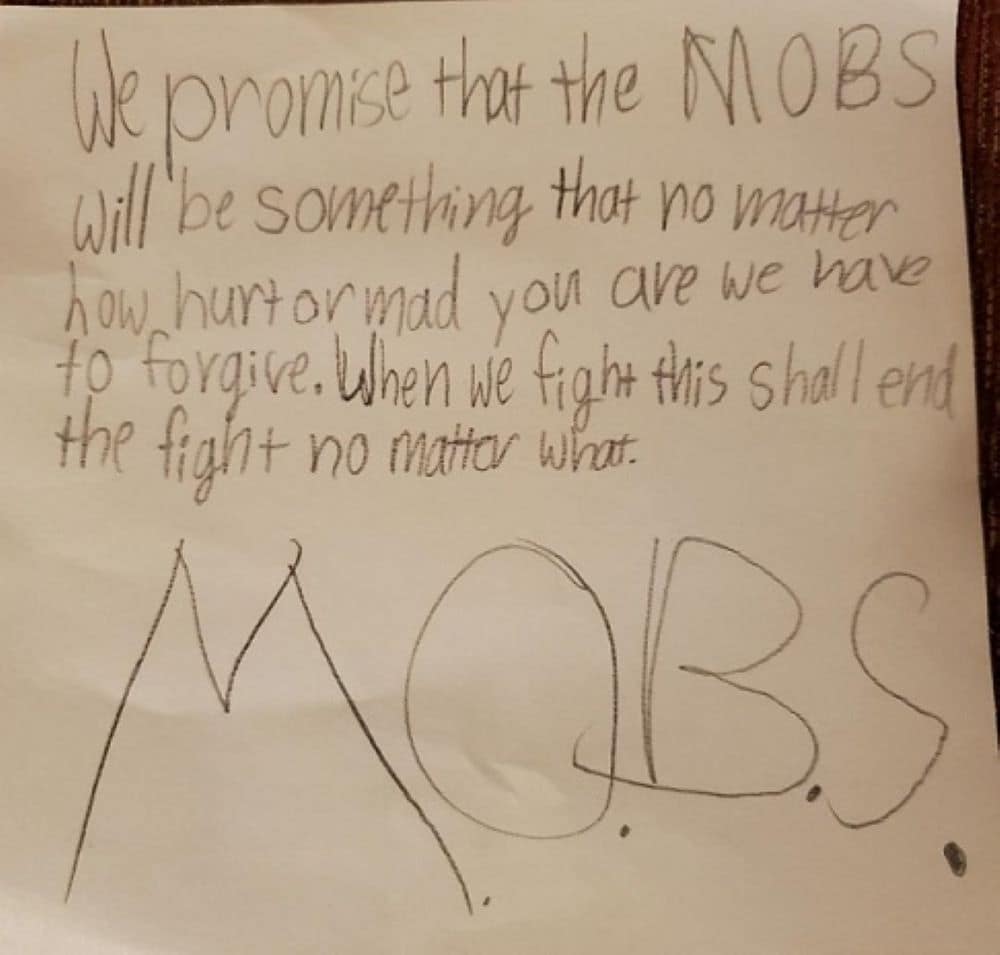 We promise that the MOBS
will be something that no matter
how hurt or mad you are we have
to forgive. When we fight this shall end
the fight no matter what.
M.O.B.S.